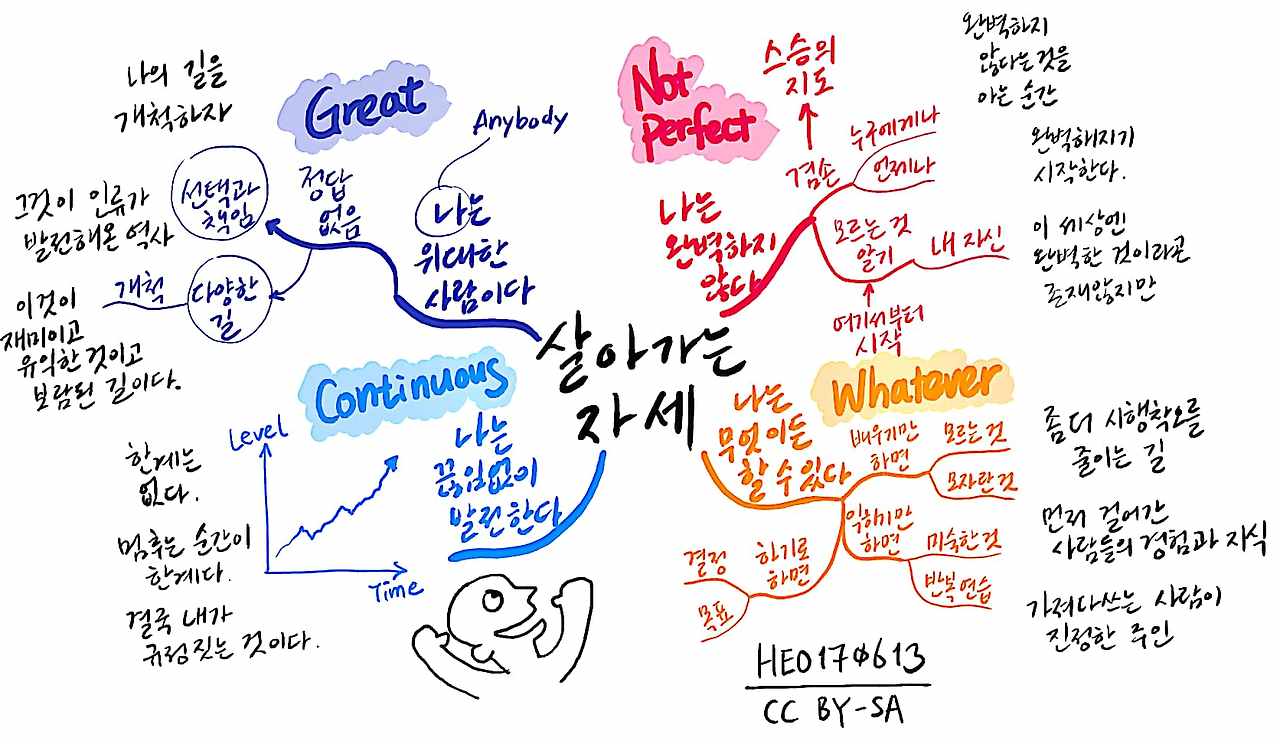 살아가는
자세
Great
나는
위대한
사람이다
Anybody
정답
없음
선택과
책임
다양한
길
개척
나의 길을
개척하자
그것이 인류가
발전해온 역사
이것이
재미이고
유익한 것이고
보람된 길이다.
Not
Perfect
나는
완벽하지
않다
겸손
스승의
지도
누구에게나
언제나
모르는 것
알기
내 자신
여기서부터
시작
완벽하지
않다는 것을
아는 순간
완벽해지기
시작한다.
이 세상엔
완벽한 것이라곤
존재않지만
Continuous
나는
끊임없이
발전한다
Level
Time
한계는
없다.
멈추는 순간이
한계다.
결국 내가
규정짓는 것이다.
Whatever
나는
무엇이든
할 수 있다
배우기만
하면
모르는 것
모자란 것
익히기만
하면
미숙한 것
반복 연습
하기로
하면
결정
목표
좀더 시행착오를
줄이는 길
먼저 걸어간
사람들의 경험과 지식
가져다쓰는 사람이
진정한 주인
HEO170613
CC BY-SA